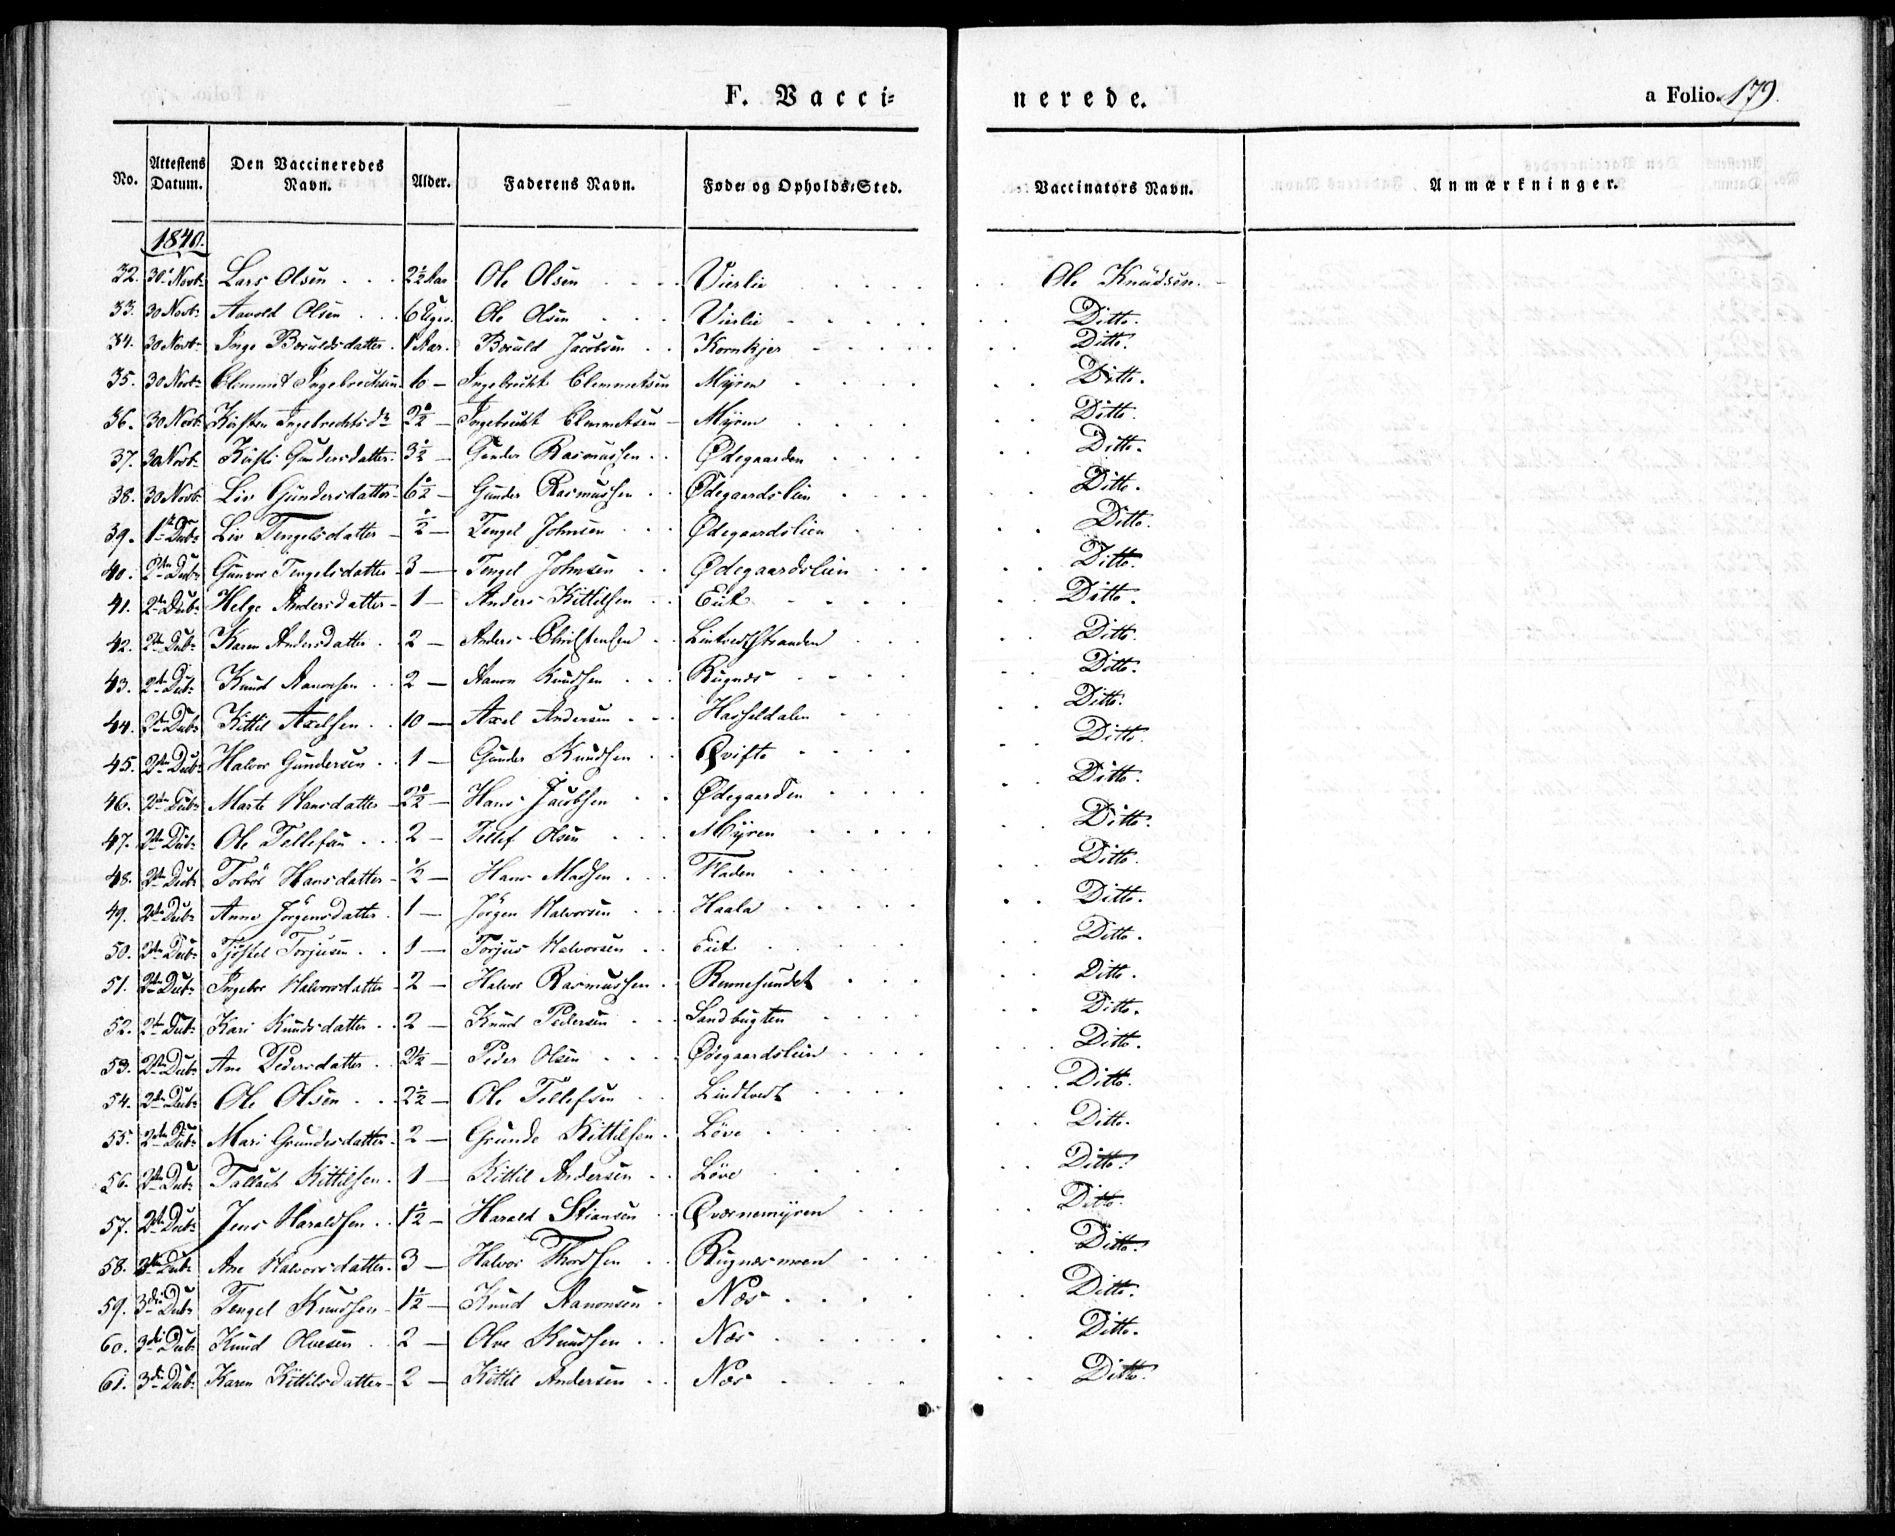 F. Vacci=
nerede.
a Folio. 179.
No. Attestens Datum. Den Vaccineredes Navn. Alder. Faderens Navn. Føde- og Opholds-Sted. Vaccinators Navn. Anmærkninger.
1840.
32. 30 Novb: Lars Olsen 2½ Aar Ole Olsen Vierlie Ole Knudsen.
33. 30 Novb: Aavold Olsen 6 Ole Olsen Vierlie Ditto.
34. 30 Novb: Inge Boruldsdatter 1 Aar. Boruld Jacobsen Kornkjer Ditto.
35. 30 Novb: Clemmet Ingebrechtsen 6 — Ingebrecht Clemmetsen Myren Ditto.
36. 30 Novb: Kirsten Ingebrechtsdr 2½ — Ingebrecht Clemmetsen Myren Ditto.
37. 30 Novb: Kirsti Gundersdatter 3½ — Gunder Rasmussen Ødegaarden Ditto.
38. 30 Novb: Liv Gundersdatter 6½ — Gunder Rasmussen Ødegaardslien Ditto.
39. 1ste Decb: Liv Tengelsdatter ½ — Tengel Johnsen Ødegaardslien Ditto.
40. 2den Decb: Gunvor Tengelsdatter 3 — Tengel Johnsen Ødegaardslien Ditto.
41. 2den Decb: Helge Andersdatter 1 — Anders Kittilsen Eiet Ditto.
42. 2den Decb: Karen Andersdatter 2 — Anders Christensen Lintvedtstranden Ditto.
43. 2den Decb: Knud Aanonsen 2 — Aanon Knudsen Rugnes Ditto.
44. 2den Decb: Kittil Axelsen 10 — Axel Andersen Hasseldalen Ditto.
45. 2den Decb: Halvor Gundersen 1 — Gunder Knudsen Qvifte Ditto.
46. 2den Decb: Marte Hansdatter 2½ — Hans Jacobsen Ødegaarden Ditto.
47. 2den Decb: Ole Tellefsen 2 — Tellef Olsen Myren Ditto.
48. 2den Decb: Torbor Hansdatter ½ — Hans Madsen Fladen Ditto.
49. 2den Decb: Anne Jörgensdatter 1 — Jörgen Halvorsen Haala Ditto.
50. 2den Decb: Tjöstel Torjusen 1 — Torjus Halvorsen Eiet Ditto.
51. 2den Decb: Ingebor Halvorsdatter 2 — Halvor Rasmussen Rennesundet Ditto.
52. 2den Decb: Kari Knudsdatter 2 — Knud Pedersen Sandbugten Ditto.
53. 2den Decb: Ane Pedersdatter 2½ — Peder Olsen Ødegaardslien Ditto.
54. 2den Decb: Ole Olsen 2½ — Ole Tellefsen Lindtvedt Ditto.
55. 2den Decb: Mari Grundesdatter 2 — Grunde Kittilsen Löve Ditto.
56. 2den Decb: Tallack Kittilsen 1 — Kittil Andersen Löve Ditto.
57. 2den Decb: Jens Haraldsen 1½ — Harald Stiansen Qvernemyren Ditto.
58. Decb: Ane Halvorsdatter 3 — Halvor Thordsen Rugnesmoen Ditto.
59. 3die Decb: Tengel Knudsen 1½ — Knud Aanonsen Næs Ditto.
60. 3die Decb: Knud Olvesen 2 — Olve Knudsen Næs Ditto.
61. 3die Decb: Karen Kittilsdatter 2 — Kittil Andersen Næs Ditto.